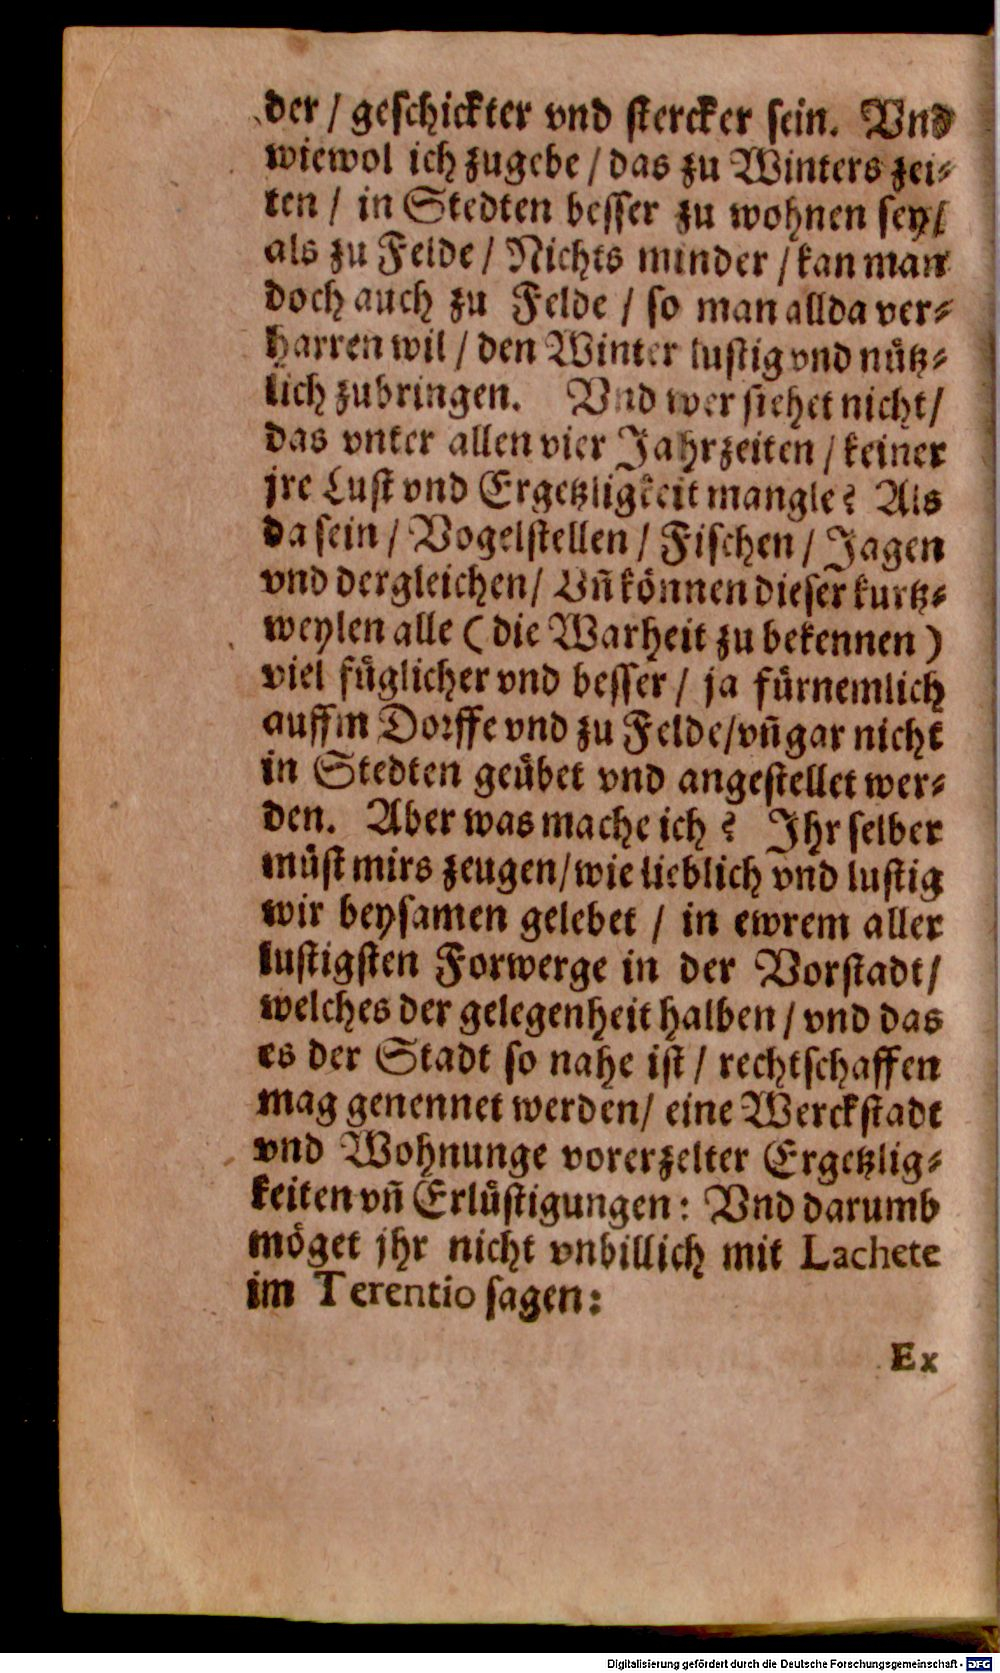 der / geschickter vnd stercker sein. Vnd
wiewol ich zugebe / das zu Winters zei⸗
ten / in Stedten besser zu wohnen sey /
als zu Felde / Nichts minder / kan man
doch auch zu Felde / so man allda ver⸗
harren wil / den Winter lustig vnd nuͤtz⸗
lich zubringen. Vnd wer siehet nicht /
das vnter allen vier Jahrzeiten / keiner
jre Lust vnd Ergetzligkeit mangle? Als
da sein / Vogelstellen / Fischen / Jagen
vnd dergleichen / Vñ koͤnnen dieser kurtz⸗
weylen alle (die Warheit zu bekennen)
viel fuͤglicher vnd besser / ja fuͤrnemlich
auffm Dorffe vnd zu Felde / vñ gar nicht
in Stedten geuͤbet vnd angestellet wer⸗
den. Aber was mache ich? Ihr selber
muͤst mirs zeugen / wie lieblich vnd lustig
wir beysamen gelebet / in ewrem aller
lustigsten Forwerge in der Vorstadt /
welches der gelegenheit halben / vnd das
es der Stadt so nahe ist / rechtschaffen
mag genennet werden / eine Werckstadt
vnd Wohnunge vorerzelter Ergetzlig⸗
keiten vñ Erluͤstigungen: Vnd darumb
moͤget jhr nicht vnbillich mit Lachete
im Terentio sagen:
Ex
Digitalisierung gefördert durch die Deutsche Forschungsgemeinschaft - DFG